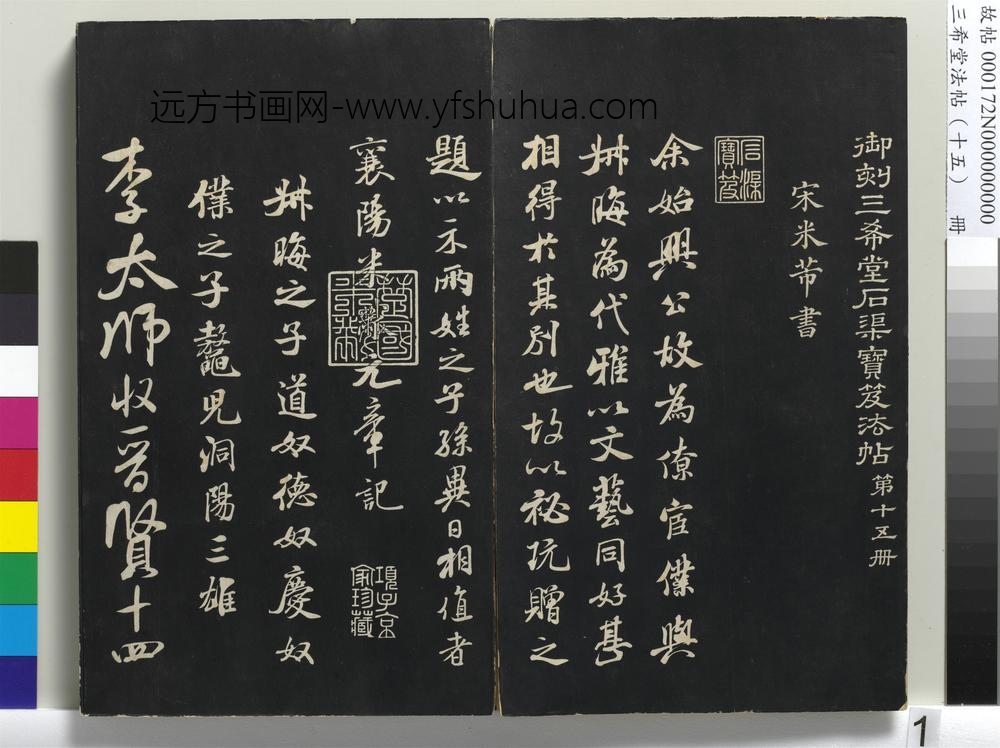 远方书画网-www.yfshuhua.com
故帖 000172N000000000
三希堂法帖（十五） 册
御刻三希堂石渠寶笈法帖 第十五册
宋米芾書
石渠寶笈
余始興公故為僚宦僕與
叔晦為代雅以文藝同好甚
相得於其別也故以祕玩贈之
題以示兩姓之子孫異日相值者
襄陽米黻元章記
項子京家珍藏
叔晦之子道奴德奴慶奴
僕之子鼇兒洞陽三雄
李太師收晉賢十四
1